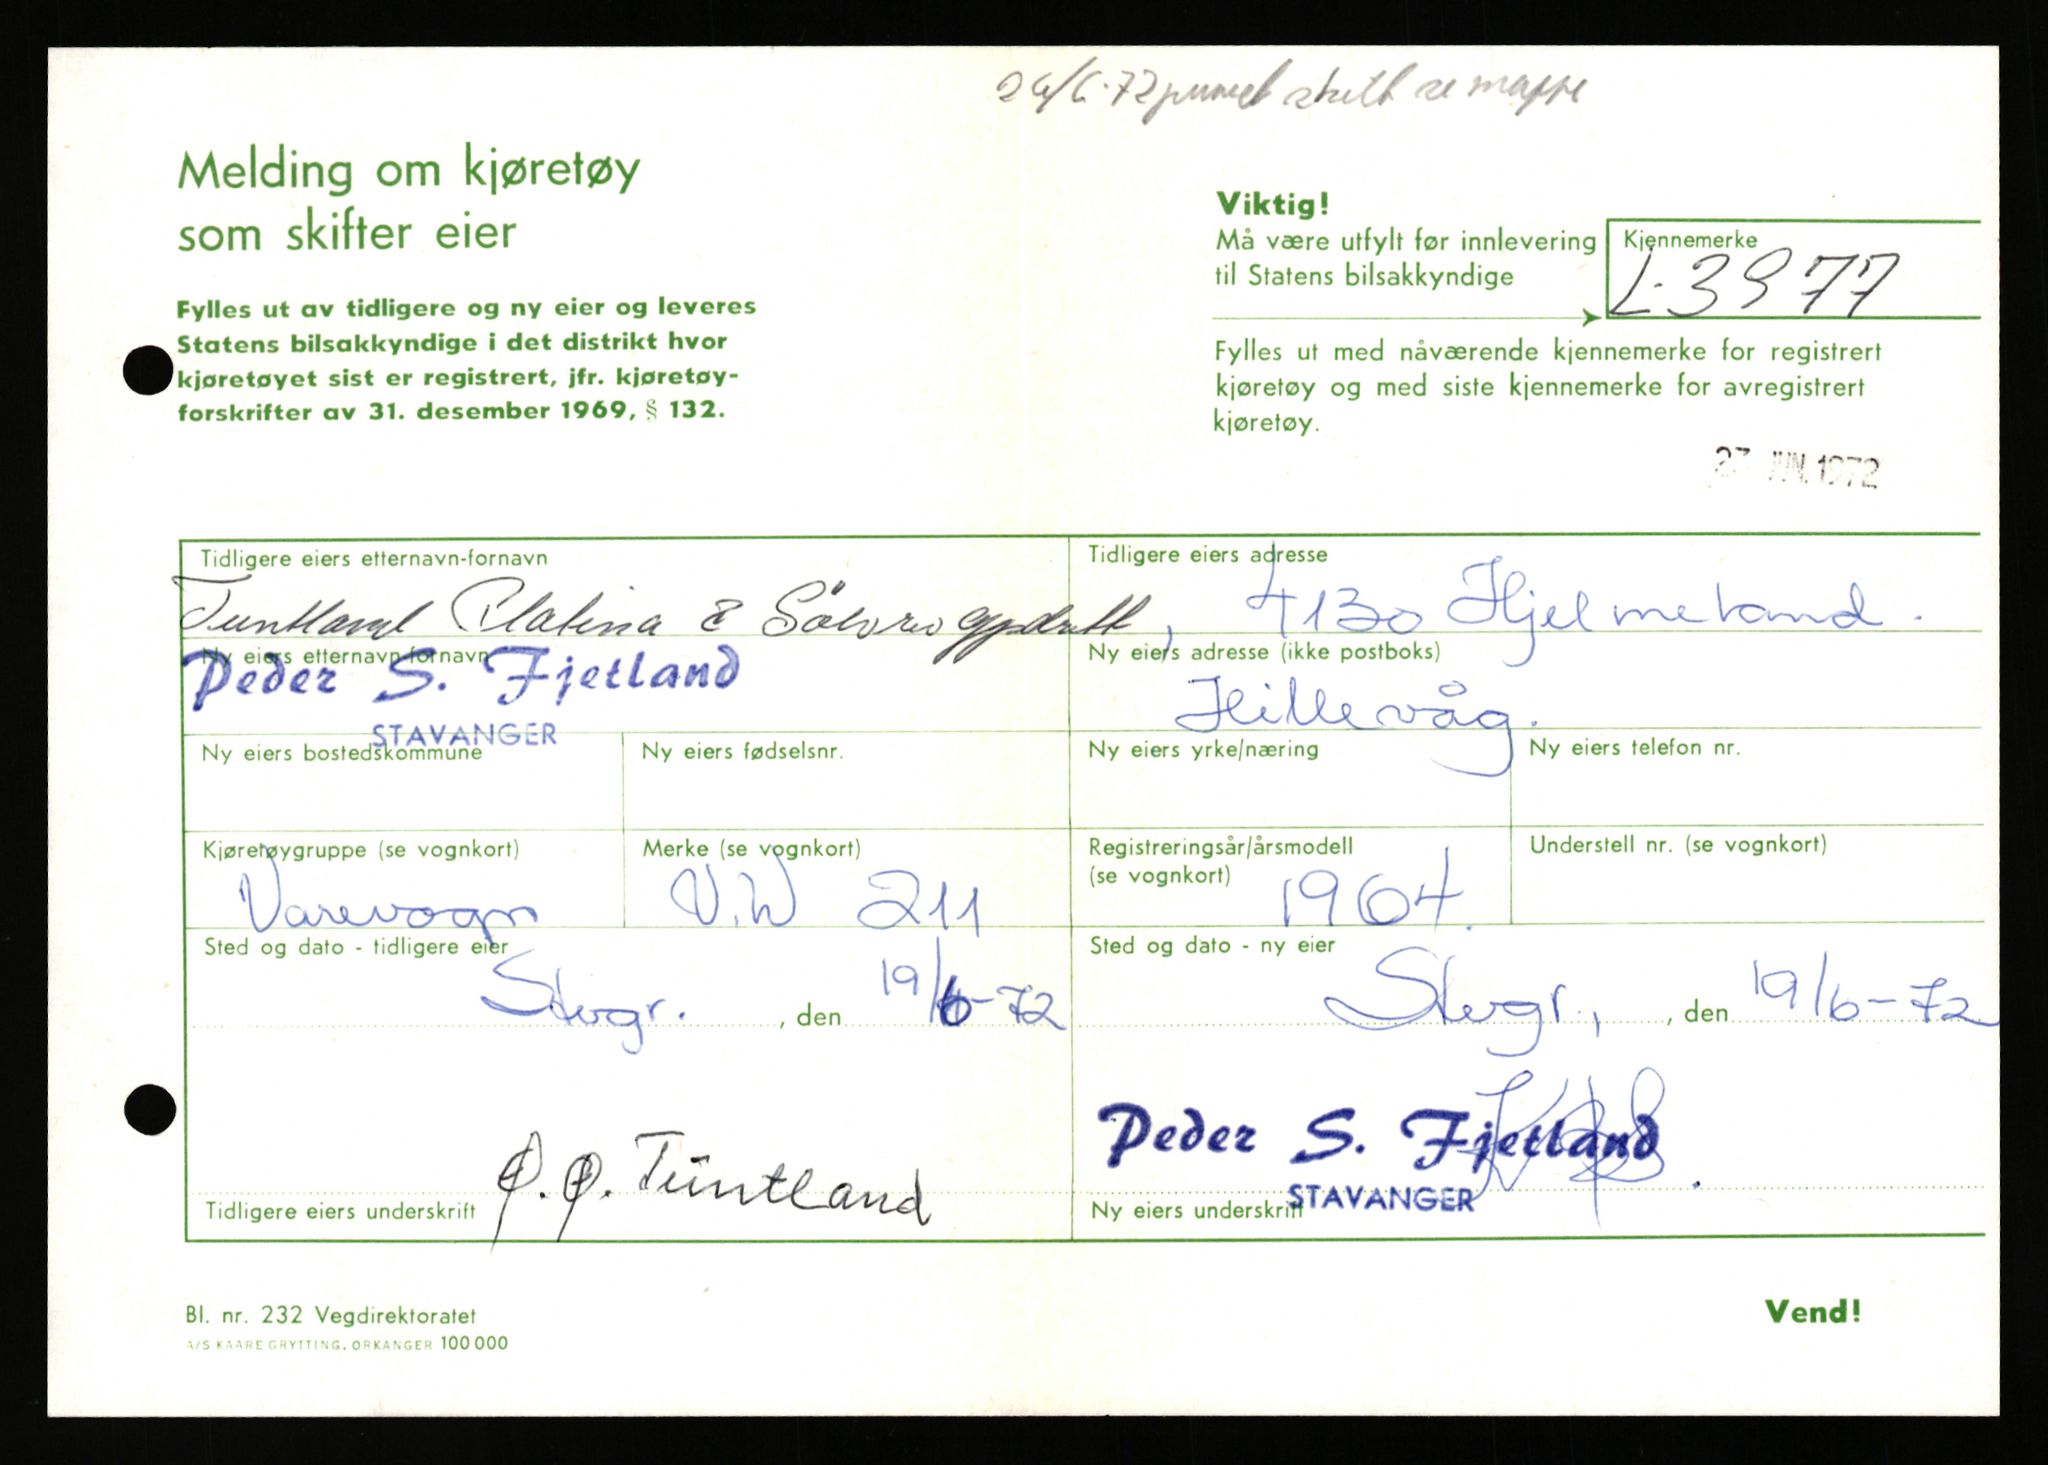 26/6-72 skilt se mappe
Melding om kjøretøy
som skifter eier
Fylles ut av tidligere og ny eier og leveres
Statens bilsakkyndige i det distrikt hvor
kjøretøyet sist er registrert, jfr. kjøretøy-
forskrifter av 31. desember 1969, § 132.
Viktig!
Må være utfylt før innlevering
til Statens bilsakkyndige
Kjennemerke
L-3977
Fylles ut med nåværende kjennemerke for registrert
kjøretøy og med siste kjennemerke for avregistrert
kjøretøy.
27 JUN. 1972
Tidligere eiers etternavn-fornavn
Tuntland Platina & Sølvvareoppdrett,
Tidligere eiers adresse
4130 Hjelmeland.
Ny eiers etternavn-fornavn
Peder S. Fjetland
STAVANGER
Ny eiers adresse (ikke postboks)
Hillevåg.
Ny eiers bostedskommune
Ny eiers fødselsnr.
Ny eiers yrke/næring
Ny eiers telefon nr.
Kjøretøygruppe (se vognkort)
Varevogn
Merke (se vognkort)
V.W 211
Registreringsår/årsmodell
(se vognkort)
1964.
Understell nr. (se vognkort)
Sted og dato - tidligere eier
Stvgr. , den 19/6-72
Sted og dato - ny eier
Stvgr., , den 19/6-72
Ø. Ø. Tuntland
Tidligere eiers underskrift
Peder S. Fjetland
STAVANGER
Ny eiers underskrift
Bl. nr. 232 Vegdirektoratet
A/S KAARE GRYTTING, ORKANGER 100 000
Vend!